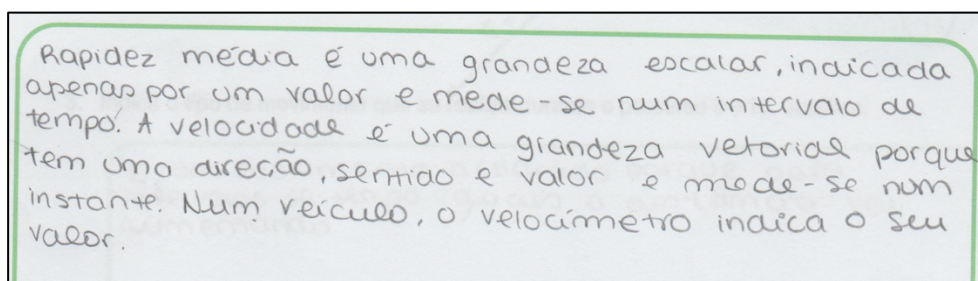 Rapidez média é uma grandeza escalar, indicada
apenas por um valor e mede-se num intervalo de
tempo. A velocidade é uma grandeza vetorial porque
tem uma direção, sentido e valor e mede-se num
instante. Num veículo, o velocímetro indica o seu
valor.